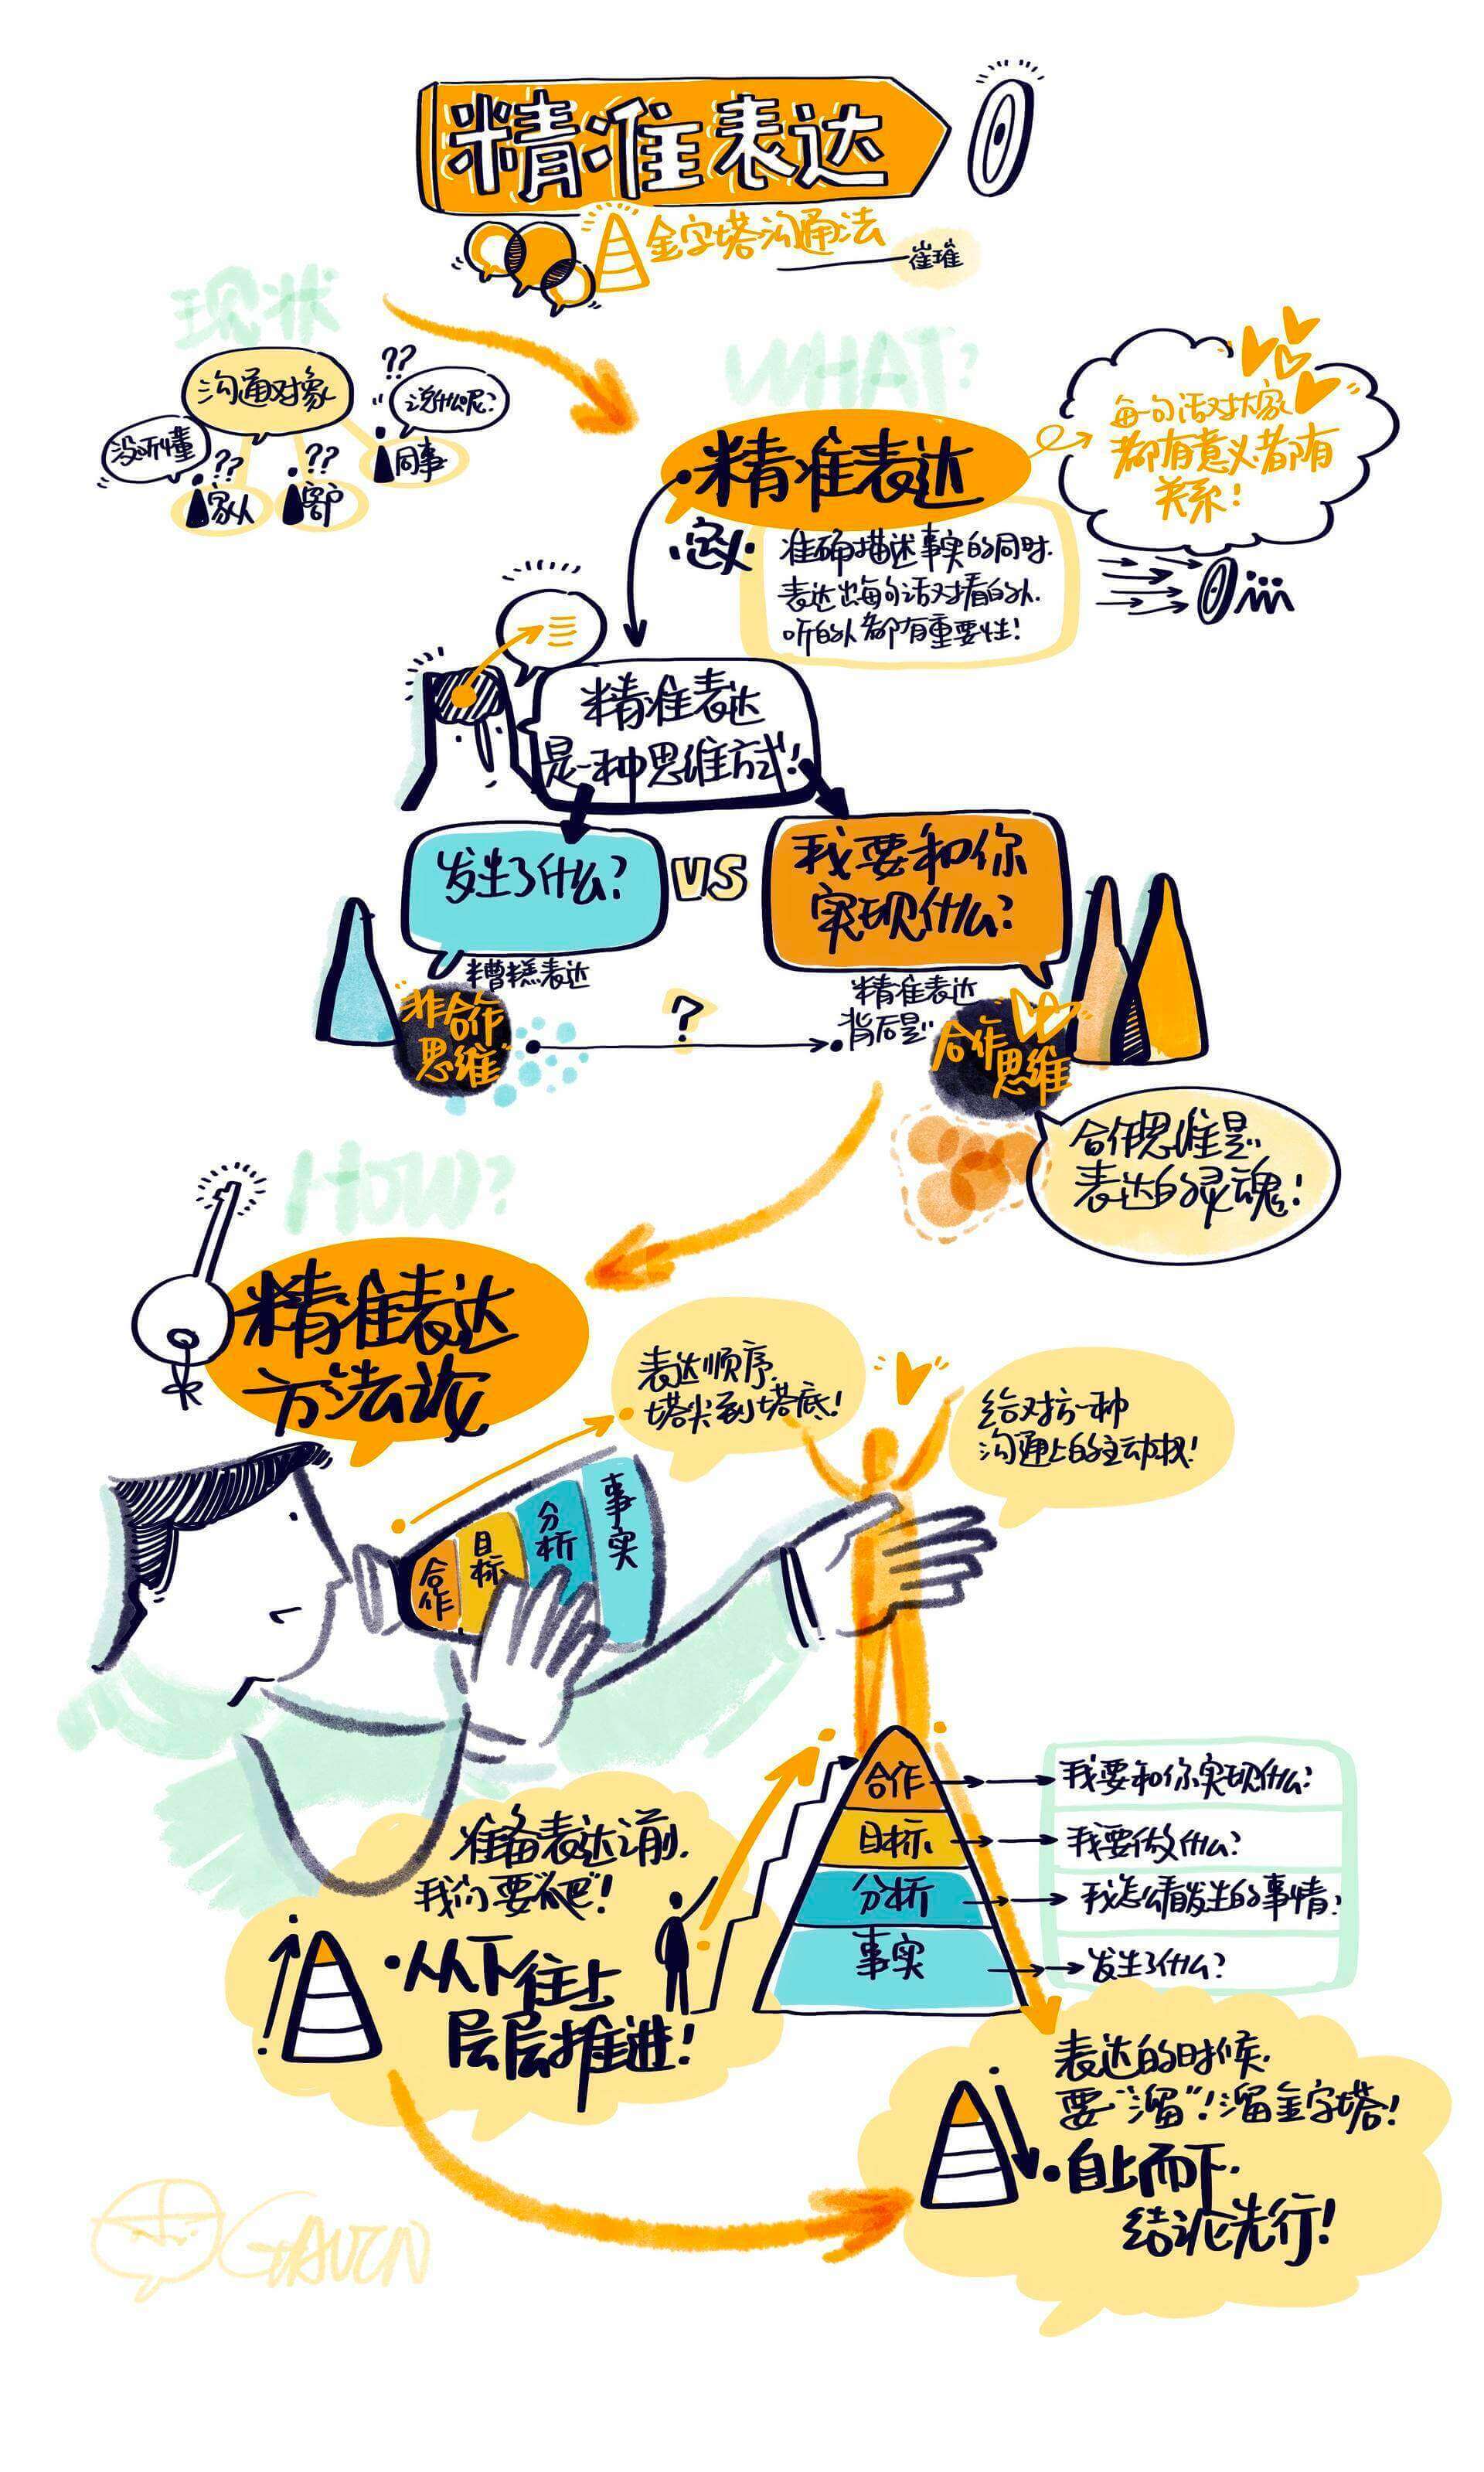 精准表达
金字塔沟通法
崔璀
现状
沟通对象
没听懂
??
家人
??
客户
??
说什么呢?
同事
WHAT?
精准表达
·定义·
准确描述事实的同时.
表达出每句话对看的人.
听的人都有重要性!
每句话对大家
都有意义都有
关系!
精准表达
是一种思维方式!
发生了什么?
VS
我要和你
实现什么?
糟糕表达
非合作
思维
?
精准表达
背后是
合作
思维
合作思维是
表达的灵魂!
HOW?
精准表达
方法论
表达顺序.
塔尖到塔底!
给对方一种
沟通上的主动权!
合作
目标
分析
事实
合作
目标
分析
事实
我要和你实现什么?
我要做什么?
我怎么看发生的事情?
发生了什么?
准备表达之前.
我们要"爬"!
·从下往上
层层推进!
表达的时候.
要"溜"!溜金字塔!
·自上而下.
结论先行!
GAVIN